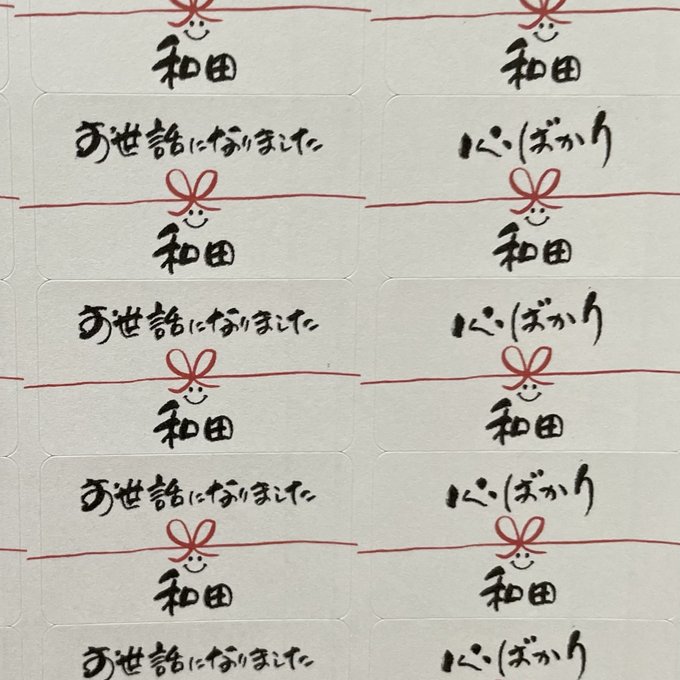 和田
和田
お世話になりました
心ばかり
和田
和田
お世話になりました
心ばかり
和田
和田
お世話になりました
心ばかり
和田
和田
お世話になりました
心ばかり